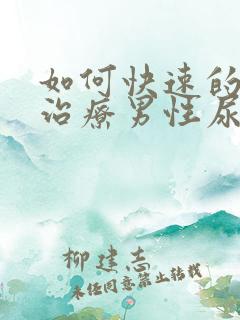 如何快速的
治疗男性尿
柳建志
未经同意禁止转载